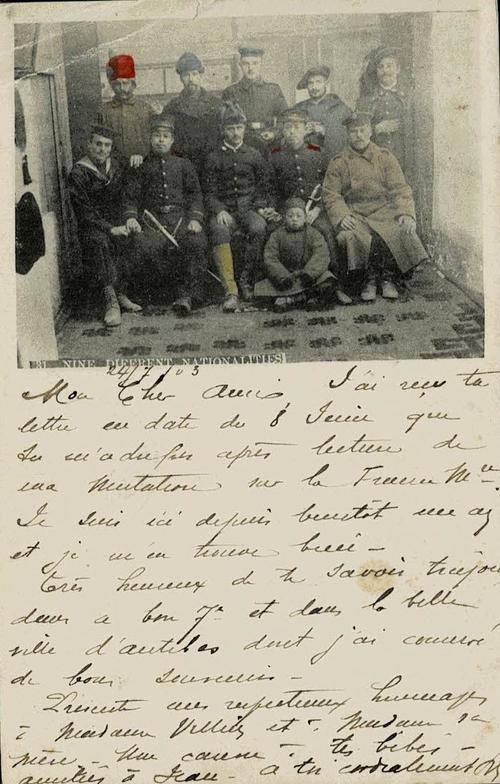 81. NINE DIFFERENT NATIONALITIES
24/7 03
Mon Cher Ami, J'ai reçu ta
lettre en date du 8 Juin que
tu m'adresses après lecture de
ma mutation sur la
Je suis ici depuis bientôt un an
et je m'en trouve bien -
Très heureux de te savoir toujours
dans le bon 7e et dans la belle
ville d'antibes dont j'ai conservé
de bons souvenirs -
Présente mes respectueux hommages
à Madame et à Madame sa
mère - Une caresse à tes bébés -
amitiés à Jean - à toi cordialement